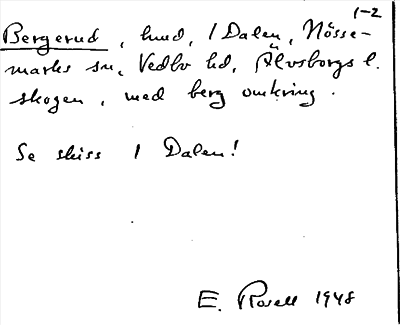 1-2
Bergerud, hmd, 1 Dalen, Nösse-
marks sn, Vedbo hd, Älvsborgs l.
skogen, med berg omkring.
Se skiss 1 Dalen!
E. Rosell 1948